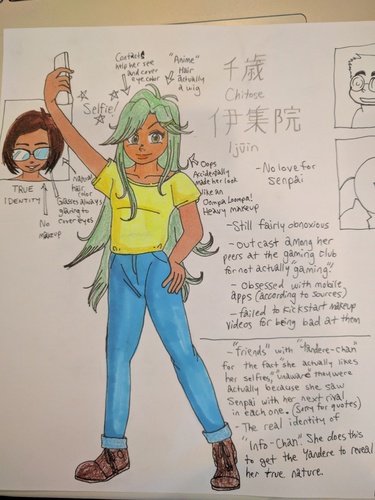 Contacts
help her see
and cover
eye color
"Anime"
Hair
actually
a wig
Selfie!
千歳
Chitose
伊集院
Ijūin
TRUE
IDENTITY
Natural
hair
color
Glasses always
glaring to
cover eyes
No
makeup
Oops
Accidentally
made her look
like an
Oompa Loompa!
Heavy makeup
-No love for
Senpai
-Still fairly obnoxious
-Outcast among her
peers at the gaming club
for not actually "gaming"
-Obsessed with mobile
apps (according to sources)
-failed to kickstart makeup
videos for being bad at them
-"friends" with "Yandere-chan"
for the fact she actually likes
her selfies, "unaware" they were
actually because she saw
Senpai with her next rival
in each one. (Sorry for quotes)
-The real identity of
"Info-Chan". She does this
to get the Yandere to reveal
her true nature.